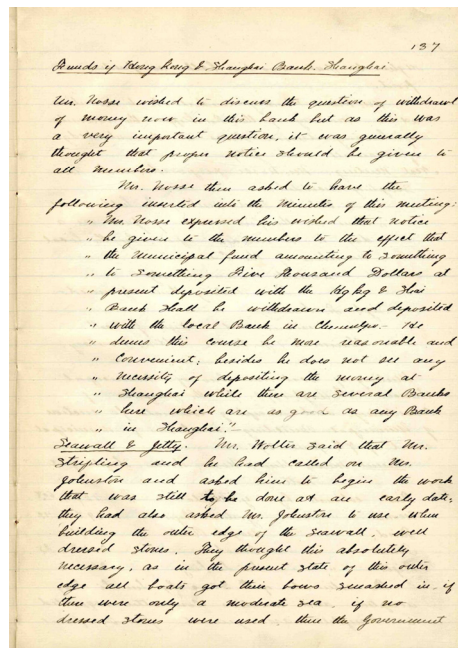 137
Funds of Hong Kong & Shanghai Bank. Shanghai
Mr. Nosse wished to discuss the question of withdrawl
of money now in this bank but as this was
a very important question, it was generally
thought that proper notice should be given to
all members.
Mr. Nosse then asked to have the
following inserted into the Minutes of this meeting:
" Mr. Nosse expressed his wished that notice
" be given to the members to the effect that
" the Municipal fund amounting to something
" to something Five Thousand Dollars at
" present deposited with the Hgkg & Shai
" Bank shall be withdrawn and deposited
" with the local Bank in Chemulpo. He
" deems this course be more reasonable and
" convenient; besides he does not see any
" necessity of depositing the money at
" Shanghai while there are several Banks
" here which are as good as any Bank
" in Shanghai."
Seawall & Jetty. Mr. Wolter said that Mr.
Stripling and he had called on Mr.
Johnston and asked him to begin the work
that was still to be done at an early date;
they had also asked Mr. Johnston to use, when
building the outer edge of the seawall, well
dressed stones. They thought this absolutely
necessary, as in the present state of this outer
edge all boats got their bows smashed in, if
there were only a moderate sea, if no
dressed stones were used, then the Government